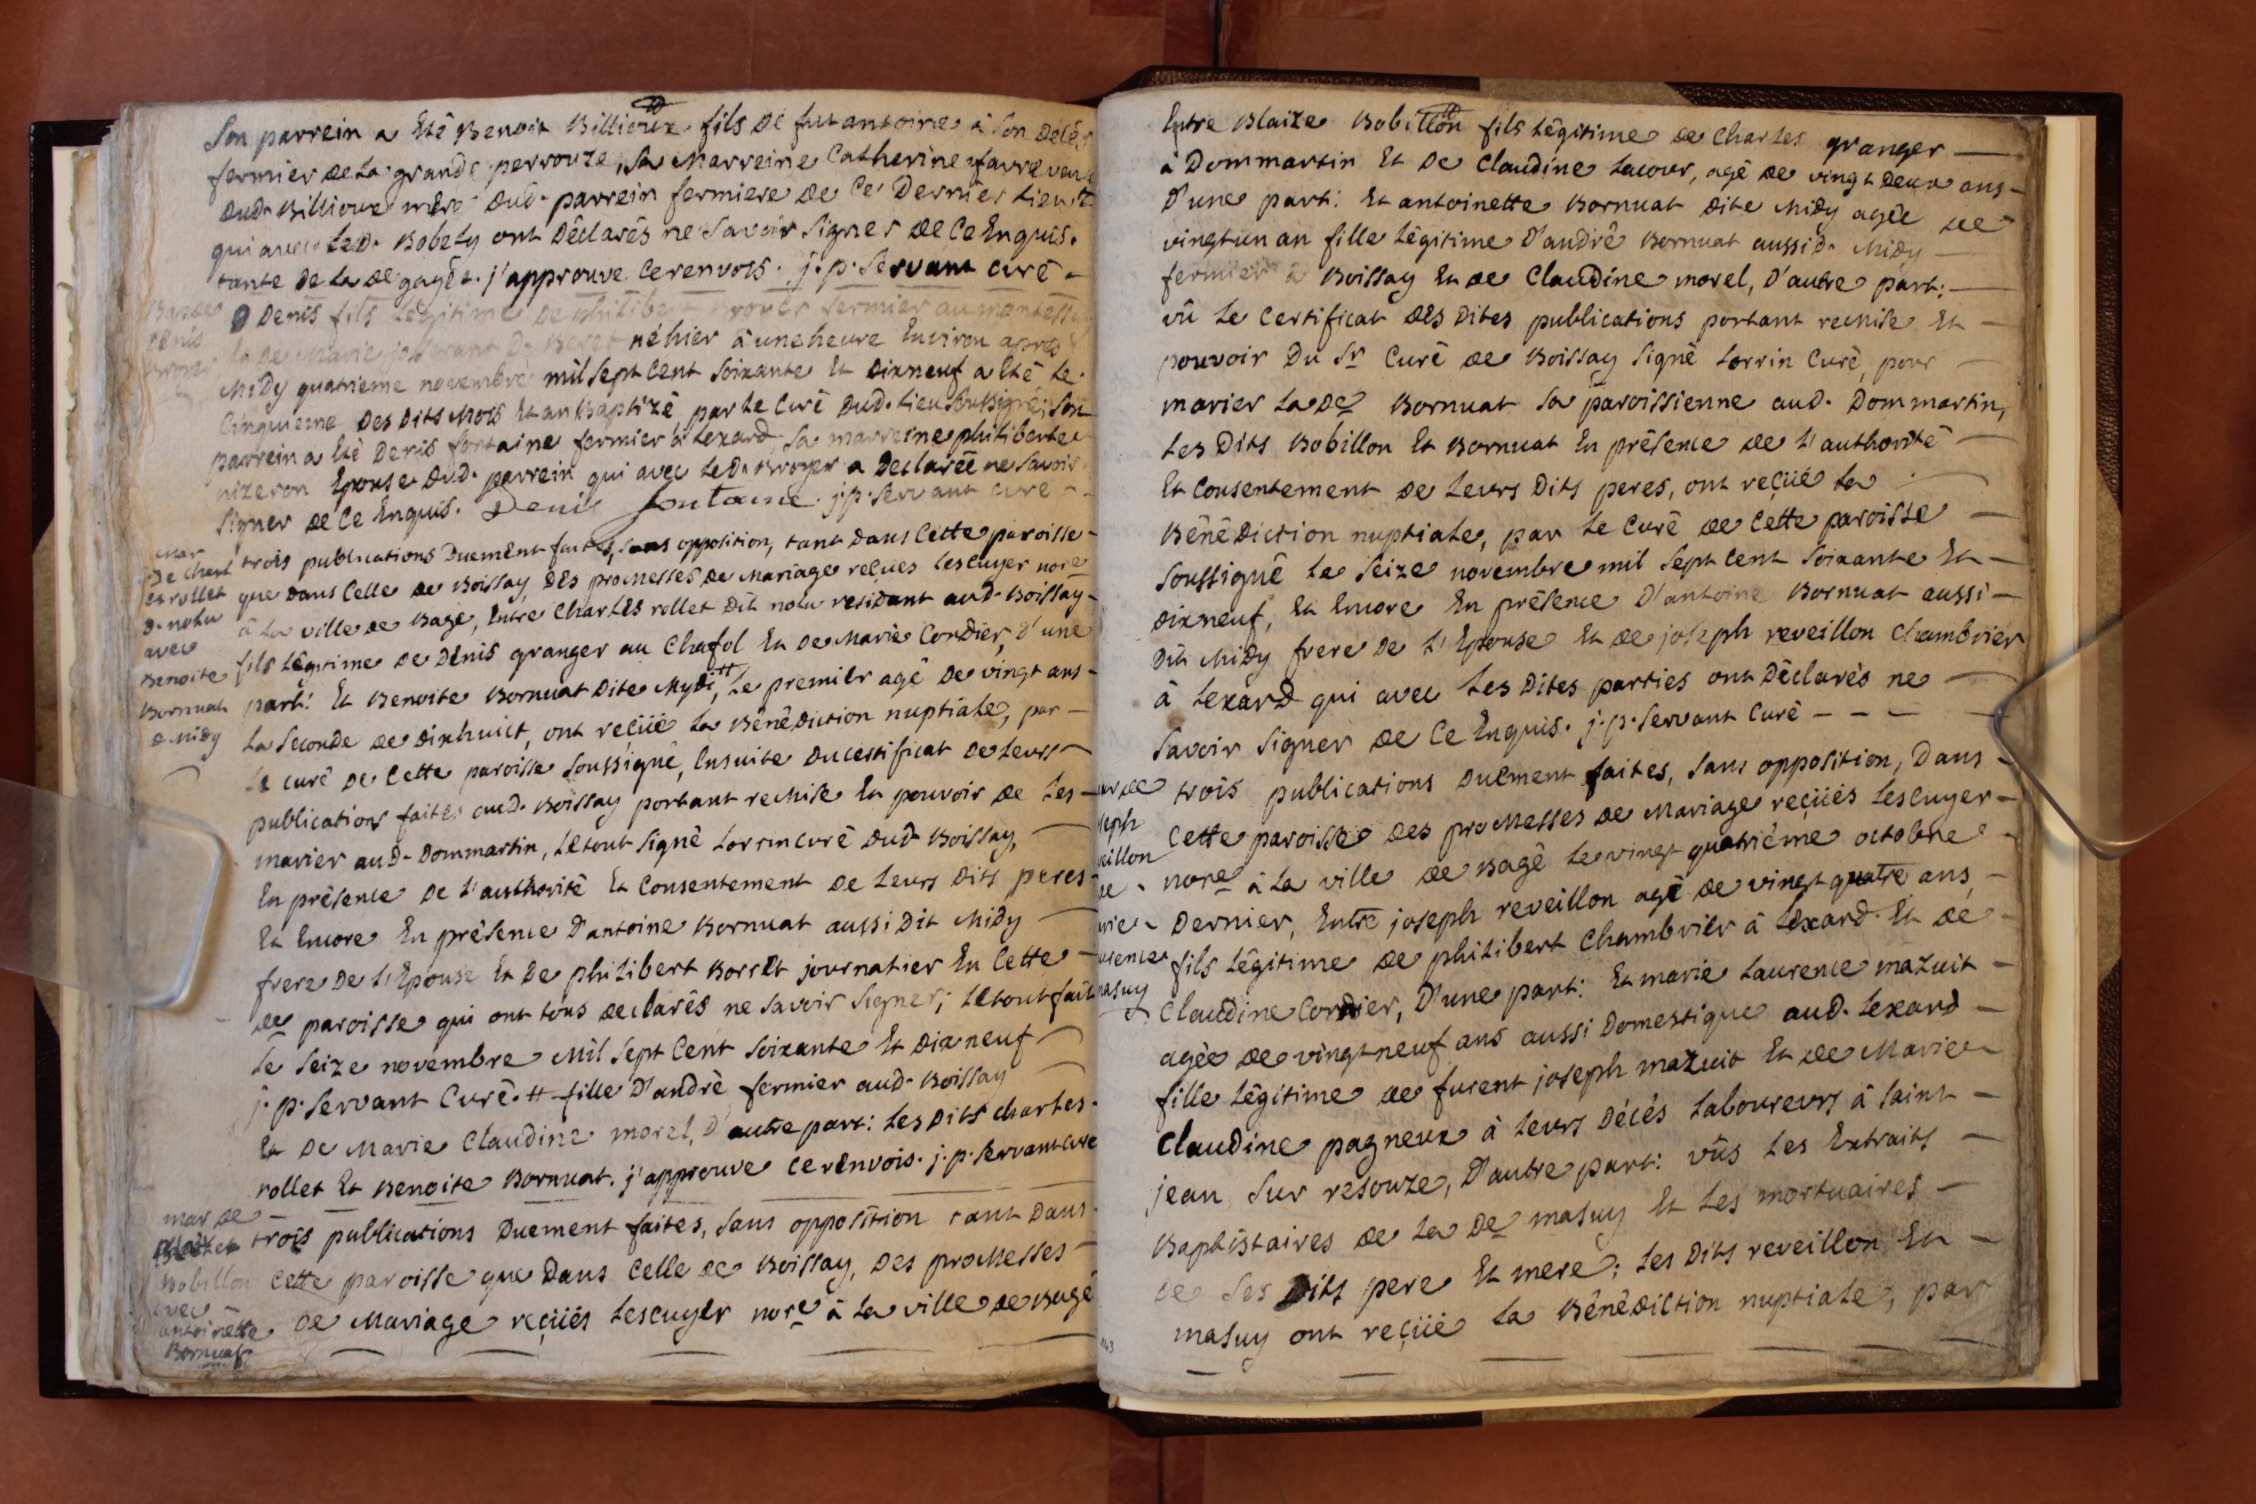 Son parrein a Eté Benoit Billioux fils de fut antoine à son décés
fermier de La grande perrouze, sa Marreine Catherine favre veuve
dud. Billioux mere dud. parrein fermiere de ce Dernier Lieu
qui avec Led. Bobely ont Déclarés ne savoir signer de ce Enquis.
tante de La De gayet. j'approuve ce renvois. j. p. Servant curé
Denis fils Légitime de philibert Broyer fermier au
La De Marie né hier à une heure Environ après
Midy quatrieme novembre mil sept cent soixante Et dixneuf a Eté Le
Cinquieme des dits Mois Et an Baptizé par Le Curé dud. Lieu soussigné; son
parrein a Eté Denis fontaine fermier à Lexard, sa marreine philiberte
nizeron Epouse dud. parrein qui avec Led. Broyer a Declaréé ne savoir
signer de ce Enquis. Denis fontaine. j. p. Servant curé
mar
de Charl
es rollet
d. nolu
avec
Benoite
Bornuat
d. Midy
trois publications Duement faites, sans opposition, tant dans Cette paroisse
que dans Celle de Boissay, des proMesses de Mariage reçues Lescuyer nore
à La ville de Bagé, Entre Charles rollet Dit nolu residant aud. Boissay
fils Légitime de Denis granger au Chafol Et de Marie Cordier, D'une
part: Et Benoite Bornuat Dite Mydi, Le premier agé de vingt ans
La seconde de dixhuict, ont reçüe La Bénédiction nuptiale, par
Le curé de Cette paroisse soussigné, Ensuite du certificat de Leurs
publications faites aud. Boissay portant remise Et pouvoir de Les
marier aud. Dommartin, Le tout signé Lorrin curé dud. Boissay,
En présence de L'authorité Et Consentement de Leurs dits peres
Et Encore En présence D'antoine Bornuat aussi Dit Midy
frere de L'Epouse Et de philibert Borrel journalier En Cette
de paroisse qui ont tous declarés ne savoir signer; Le tout fait
Le seize novembre Mil sept Cent soixante Et dixneuf
j. p. Servant Curé. # fille D'andré fermier aud. Boissay
Et de Marie Claudine morel, D'autre part: Les dits charles
rollet Et Benoite Bornuat. j'approuve ce renvois. j. p. Servant Curé
mar de
Bobillon
avec
antoinette
Bornuat
trois publications Duement faites, sans opposition tant dans
Cette paroisse que dans Celle de Boissay, des proMesses
de Mariage reçüés Lescuyer nore à La ville de Bagé
Entre Blaize Bobillon fils Légitime de Charles granger
à Dommartin Et de Claudine Lacour, agé de vingt deux ans
D'une part: Et antoinette Bornuat dite Midy agée de
vingt un an fille Légitime D'andré Bornuat aussi d. Midy
fermier à Boissay Et de Claudine morel, D'autre part:
vû Le Certificat des dites publications portant remise Et
pouvoir du Sr Curé de Boissay signé Lorrin Curé, pour
marier La de Bornuat sa paroissienne aud. Dommartin,
Les dits Bobillon Et Bornuat En présence de L'authorité
Et Consentement de Leurs dits peres, ont reçüé La
Bénédiction nuptiale, par Le Curé de Cette paroisse
soussigné Le seize novembre mil sept Cent soixante Et
dixneuf, Et Encore En présence D'antoine Bornuat aussi
dit Midy frere de L'Epouse Et de joseph reveillon Chambrier
à Lexard qui avec Les dites parties ont Déclarés ne
savoir signer de ce Enquis. j. p. Servant Curé
mar de
seph
eillon
urence
masuy
trois publications Duement faites, sans opposition, Dans
Cette paroisse des proMesses de Mariage reçüés Lescuyer
nore à La ville de Bagé Le vingt quatriéme octobre
Dernier, Entre joseph reveillon agé de vingt quatre ans,
fils Légitime de philibert Chambrier à Lexard Et de
Claudine Cordier, D'une part: Et marie Laurence mazuit
agée de vingt neuf ans aussi Domestique aud. Lexard
fille Légitime de furent joseph mazuit Et de Marie
Claudine pagneux à Leurs Décés Laboureurs à saint
jean sur resouze, D'autre part: vûs Les Extraits
Baptistaires de La de masuy Et Les mortuaires
de ses dits pere Et mere; Les dits reveillon Et
masuy ont reçüé La Bénédiction nuptiale, par